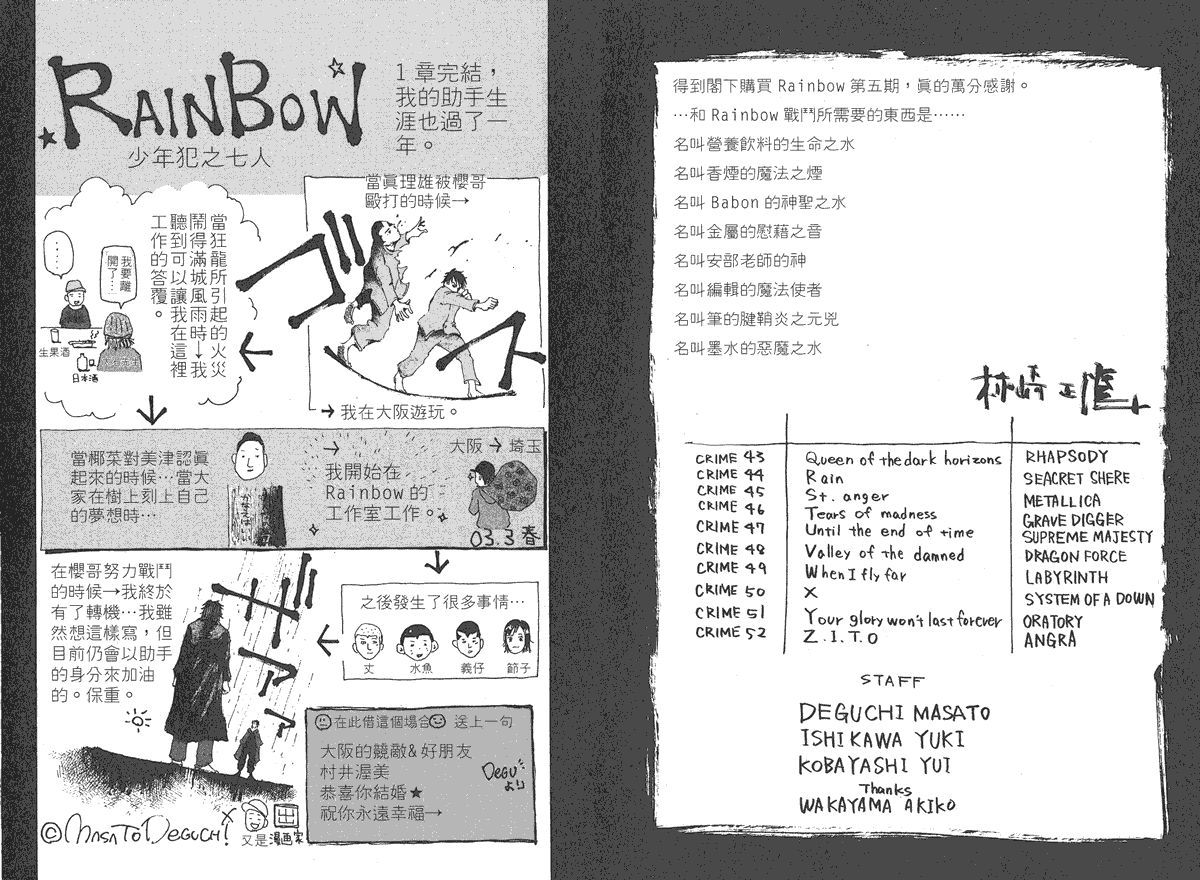 RAINBOW
少年犯之七人
1章完結，
我的助手生
涯也過了一
年。
當眞理雄被櫻哥
毆打的時候→
→我在大阪遊玩。
當狂龍所引起的火災
鬧得滿城風雨時→我
聽到可以讓我在這裡
工作的答覆。
…
我要離
開了…
生果酒
日本酒
當椰菜對美津認眞
起來的時候…當大
家在樹上刻上自己
的夢想時…
→
我開始在
Rainbow的
工作室工作。
大阪→埼玉
03.3春
之後發生了很多事情…
丈
水魚
義仔
節子
在櫻哥努力戰鬥
的時候→我終於
有了轉機…我雖
然想這樣寫，但
目前仍會以助手
的身分來加油
的。保重。
ザァァ
在此借這個場合 送上一句
大阪的競敵&好朋友
村井渥美
恭喜你結婚★
祝你永遠幸福→
DEGUより
©MASATO.DEGUCHI
出
又是漫画家
得到閣下購買 Rainbow 第五期，眞的萬分感謝。
…和 Rainbow 戰鬥所需要的東西是……
名叫營養飲料的生命之水
名叫香煙的魔法之煙
名叫 Babon 的神聖之水
名叫金屬的慰藉之音
名叫安部老師的神
名叫編輯的魔法使者
名叫筆的腱鞘炎之元兇
名叫墨水的惡魔之水
CRIME 43 Queen of the dark horizons RHAPSODY
CRIME 44 Rain SEACRET SHERE
CRIME 45 St. anger METALLICA
CRIME 46 Tears of madness GRAVE DIGGER
CRIME 47 Until the end of time SUPREME MAJESTY
CRIME 48 Valley of the damned DRAGON FORCE
CRIME 49 When I fly far LABYRINTH
CRIME 50 X SYSTEM OF A DOWN
CRIME 51 Your glory won't last forever ORATORY
CRIME 52 Z.I.T.O ANGRA
STAFF
DEGUCHI MASATO
ISHIKAWA YUKI
KOBAYASHI YUI
Thanks
WAKAYAMA AKIKO